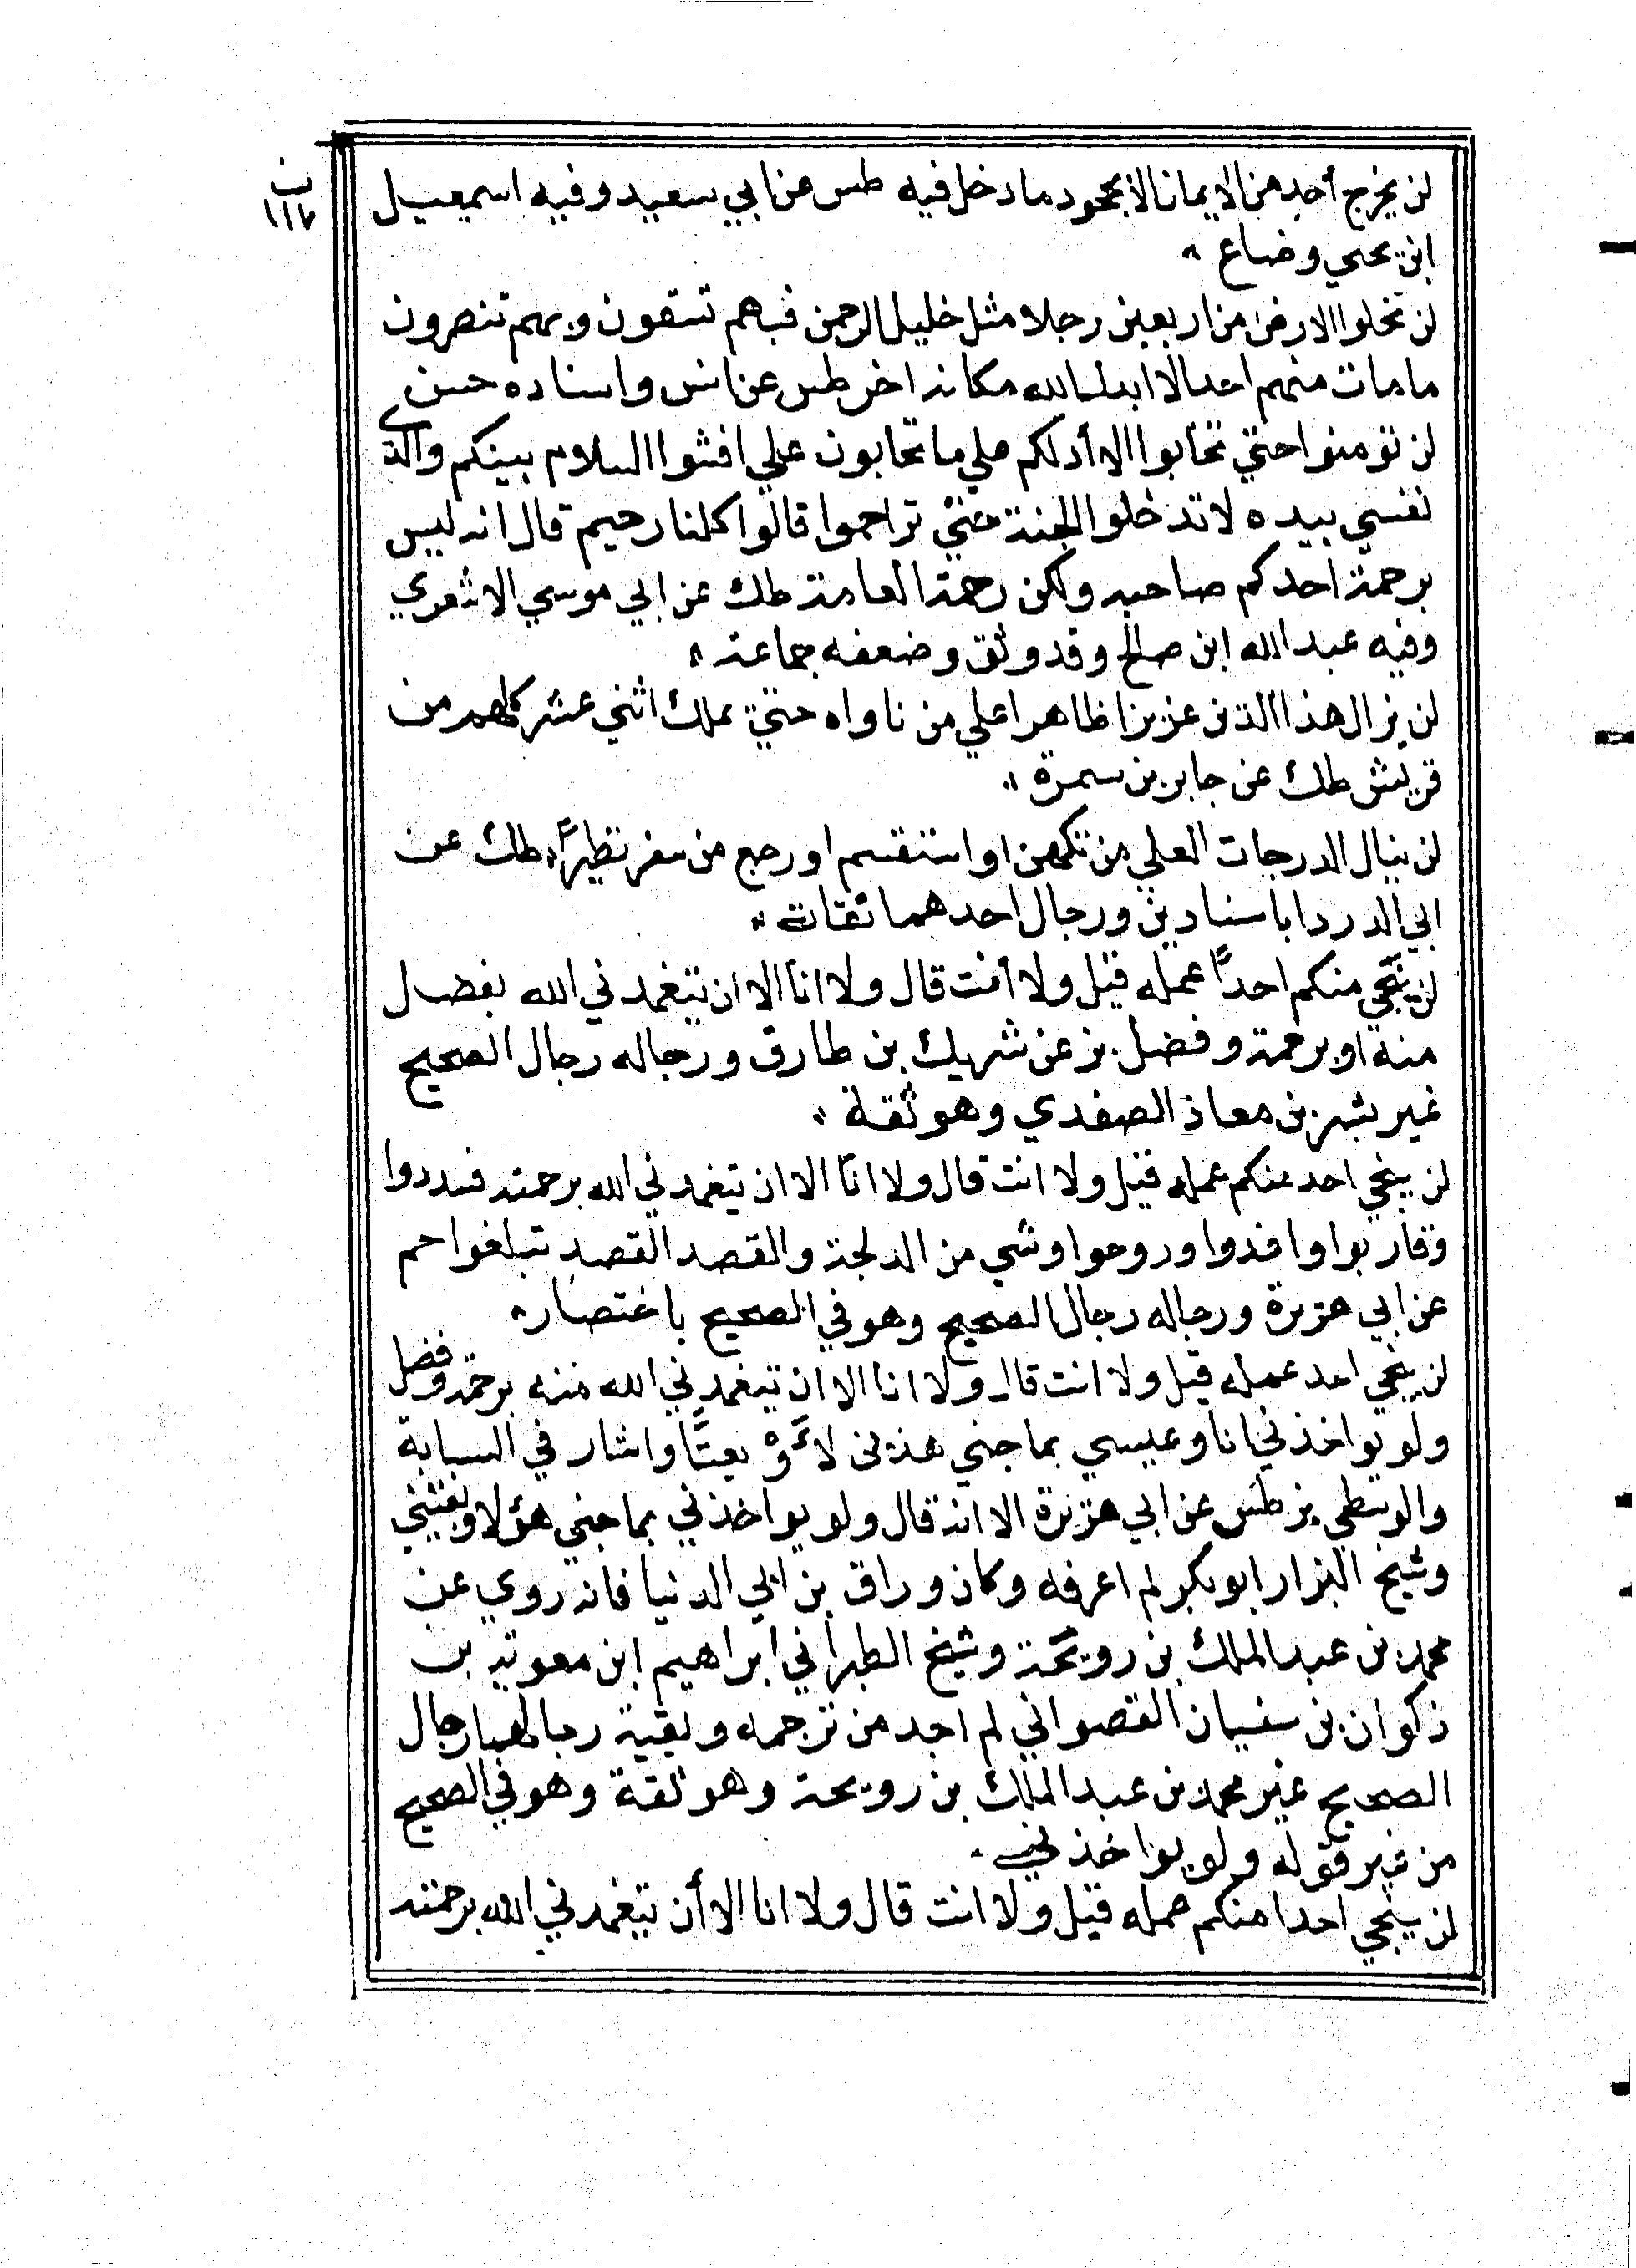 ن
١١٧
لن يخرج أحد من الايمان الا بجحود ما دخل فيه طس عن ابي سعيد وفيه اسمعيل
ابن يحيي وضاع
لن تخلوا الارض من اربعين رجلا مثل خليل الرحمن فبهم تسقون وبهم تنصرون
ما مات منهم احد الا ابدل الله مكانه اخر طس عن انس واسناده حسن
لن تومنوا حتي تحابوا الا أدلكم علي ما تحابون علي افشوا السلام بينكم والذي
نفسي بيده لا تدخلوا الجنة حتي تراحموا قالوا كلنا رحيم قال انه ليس
برحمة احدكم صاحبه ولكن رحمة العامة طك عن ابي موسي الاشعري
وفيه عبد الله ابن صالح وقد وثق وضعفه جماعة
لن يزال هذا الدين عزيزا ظاهرا علي من ناواه حتي يملك اثني عشر كلهم من
قريش طك عن جابر بن سمرة
لن ينال الدرجات العلي من تكهن او استقسم او رجع من سفر تطيرًا طك عن
ابي الدردا باسنادين ورجال احدهما ثقات
لن ينجي منكم احدًا عمله قيل ولا أنت قال ولا انا الا ان يتغمدني الله بفضل
منه او برحمة وفضل بز عن شريك بن طارق ورجاله رجال الصحيح
غير بشر بن معاذ الصفدي وهو ثقة
لن ينجي احد منكم عمله قيل ولا انت قال ولا انا الا ان يتغمدني الله برحمته فسددوا
وقاربوا وافدوا وروحوا وشي من الدلجة والقصد القصد تبلغوا حم
عن ابي هريرة ورجاله رجال الصحيح وهو في الصحيح باختصار
لن ينجي احد عمله قيل ولا انت قال ولا انا الا ان يتغمدني الله منه برحمة وفضل
ولو يواخذني انا وعيسي بما جني هذين واشار في السبابة
والوسطي بز طس عن ابي هريرة الا انه قال ولو يواخذني بما جني هؤلا
وشيخ البزار ابو بكر لم اعرفه وكان وراق بن ابي الدنيا فانه روي عن
محمد بن عبد الملك بن رويحة وشيخ الطبراني ابراهيم ابن معوية بن
ذكوان بن سفيان القصواني لم اجد من ترجمه وبقية رجالهما رجال
الصحيح غير محمد بن عبد الملك بن رويحة وهو ثقة وهو في الصحيح
من غير قوله ولو يواخذني
لن ينجي احدا منكم عمله قيل ولا انت قال ولا انا الا أن يتغمدني الله برحمته